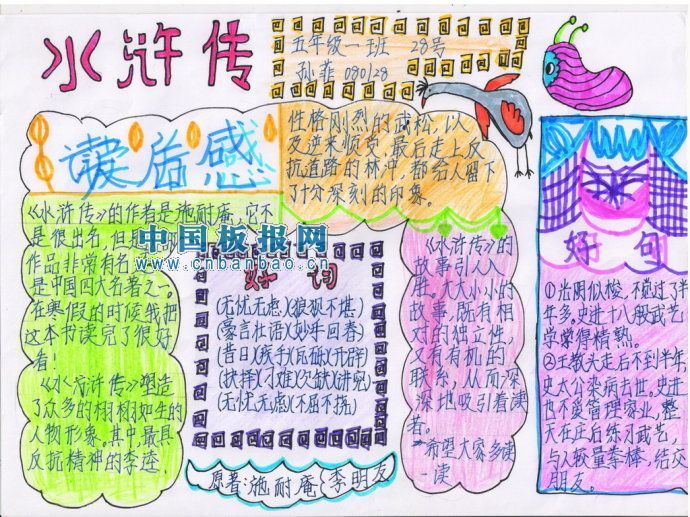 水浒传
五年级一班 28号
孙菲 080128
读后感
《水浒传》的作者是施耐庵,它不
是很出名,但是
作品非常有名
是中国四大名著之一。
在寒假的时候我把
这本书读完了很好
看!
《水浒传》塑造
了众多的栩栩如生的
人物形象。其中,最具
反抗精神的李逵,
性格刚烈的武松,以
及逆来顺受 最后走上反
抗道路的林冲,都给人留下
了十分深刻的印象。
中国板报网
www.cnbanbao.cn
好词
(无忧无虑)(狼狈不堪)
(豪言壮语)(妙手回春)
(昔日)(疾手)(瓦砾)(开辟)
(抉择)(刁难)(欠缺)(讲究)
(无忧无虑)(不屈不挠)
原著:施耐庵 李明友
《水浒传》的
故事引人入
胜。大大小小的
故事,既有相
对的独立性,
又有有机的
联系,从而深
深地吸引着读
者。
希望大家多读
一读
好句
①光阴似梭,不觉过了半
年多,史进十八般武艺
学学得精熟。
②王教头走后不到半年,
史太公染病去世。史进
也不爱管理家业,整
天在庄后练习武艺,
与人较量拳棒,结交
朋友。